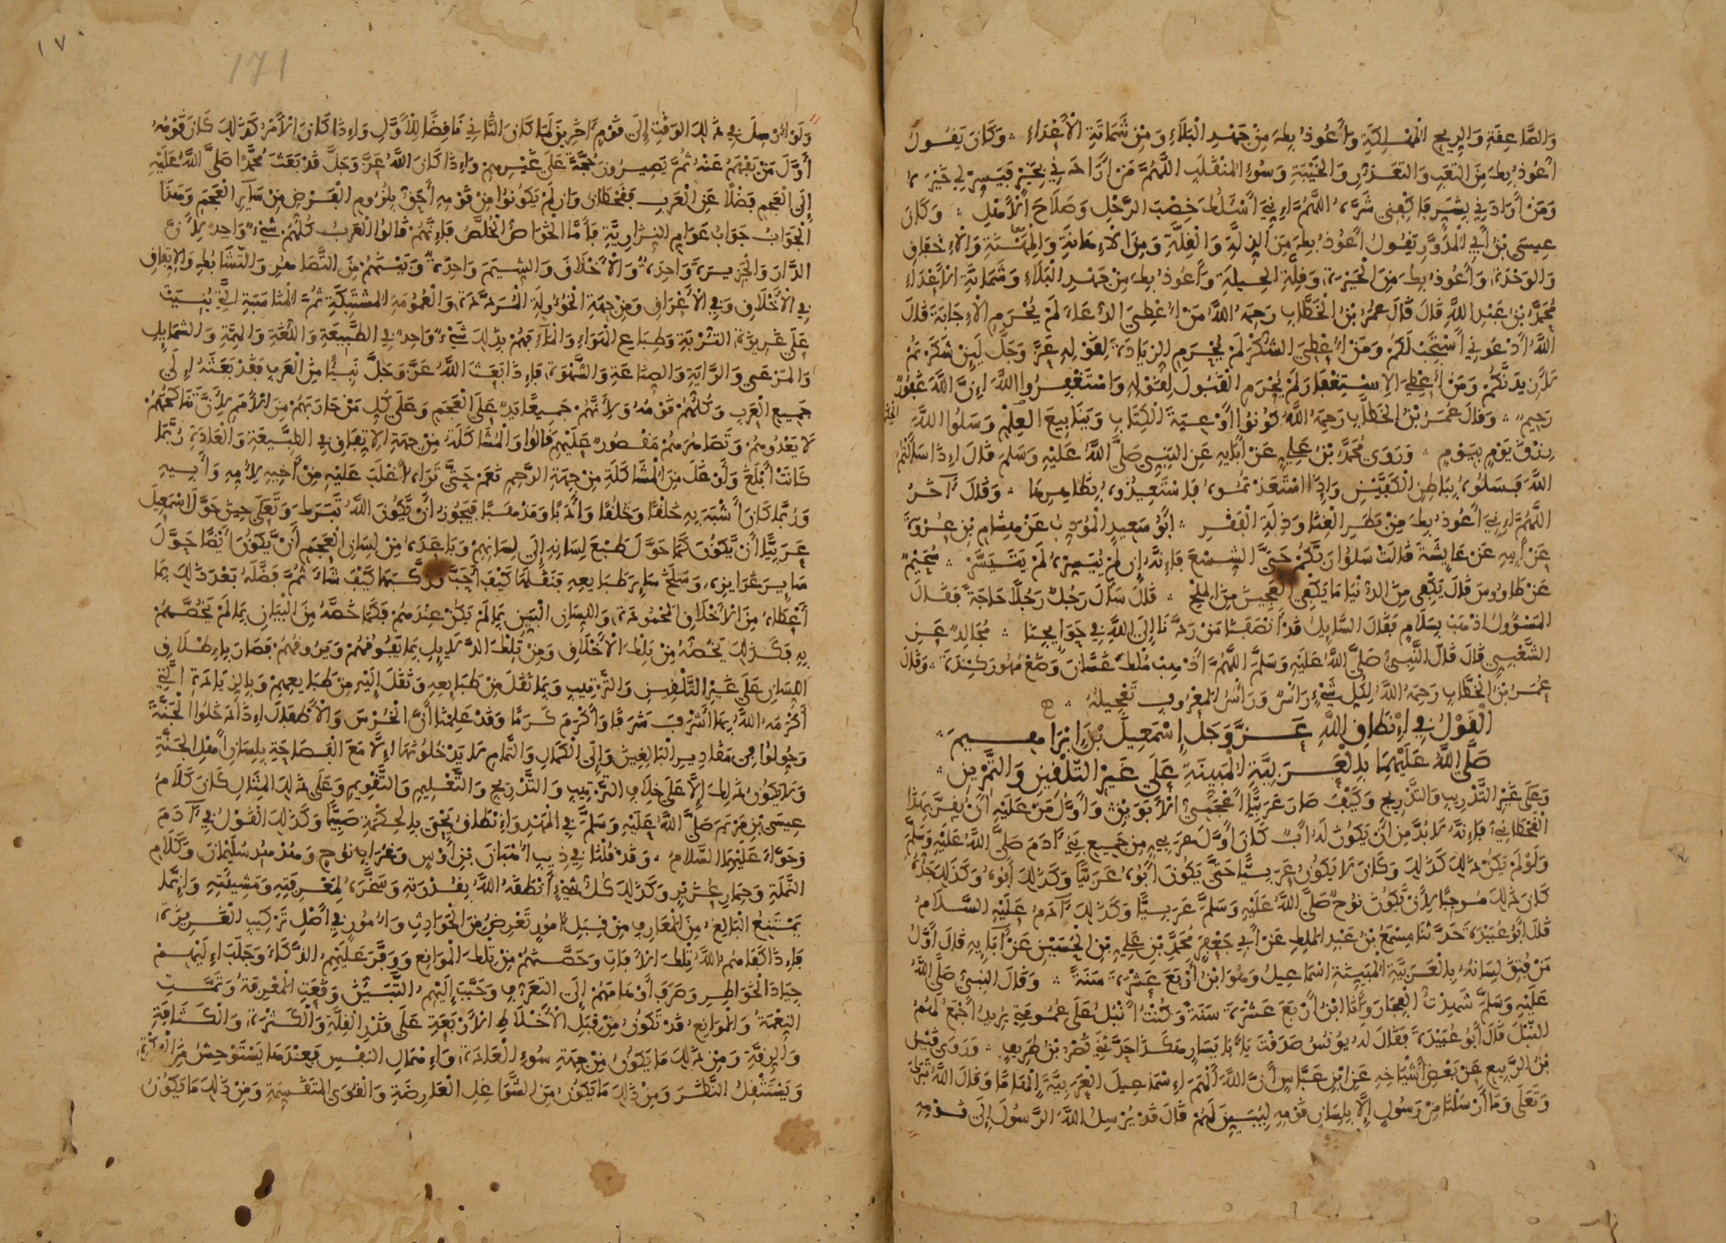 والصاعقة والريح المهلكة وأعوذ بك من جهد البلاء ومن شماتة الأعداء وكان يقول
أعوذ بك من التعب والتعذر والخيبة وسوء المنقلب اللهم من أرادني بخير فيسر لي خيره
ومن أرادني بشر فاكفني شره اللهم إني أسئلك خصب الرحل وصلاح الأهل وكان
عيسى بن أبي المدور يقول أعوذ بك من الذلة والقلة ومن الإهانة والمهنة والإخفاق
والوحدة وأعوذ بك من الحيرة وقلة الحيلة وأعوذ بك من جهد البلاء وشماتة الأعداء
محمد بن عبد الله قال قال عمر بن الخطاب رحمه الله من أعطي الدعاء لم يحرم الإجابة قال
الله ادعوني أستجب لكم ومن أعطي الشكر لم يحرم الزيادة لقوله عز وجل لئن شكرتم
لأزيدنكم ومن أعطي الاستغفار لم يحرم القبول لقوله واستغفروا الله إن الله غفور
رحيم وقال عمر بن الخطاب رحمه الله كونوا أوعية الكتاب وينابيع العلم وسلوا الله
رزق يوم بيوم وروى محمد بن علي عن آبائه عن النبي صلى الله عليه وسلم قال إذا سألتم
الله فسلوه بباطن الكفين وإذا استعذتموه فاستعيذوه بظاهرهما وقال آخر
اللهم إني أعوذ بك من بطر الغنا وذلة الفقر أبو سعيد المودب عن هشام بن عروة
عن أبيه عن عايشة قالت سلوا ربكم حتى الشسع فإنه إن لم ييسره لم يتيسر سحيم
عن طاووس قال يكفي من الدنيا ما يكفي العجين من الملح قال سأل رجل رجلا حاجة فقال
المسؤول اذهب بسلام فقال السايل قد أنصفنا من ردنا إلى الله في حوايجنا مجالد عن
الشعبي قال قال النبي صلى الله عليه وسلم اللهم أذهب ملك غسان وضع مهور كندة وقال
عمر بن الخطاب رحمه الله لكل شيء رأس ورأس المعروف تعجيله
القول في إنطاق الله عز وجل إسمعيل بن إبراهيم
صلى الله عليهما بالعربية المبينة على غير التلقين والتمرين
وعلى غير التدريب والتدريج وكيف صار عربيا أعجمي الأبوين وأول من عليه أن يقر بهذا
القحطاني فإنه لا بد من أن يكون له أب كان أول عربي من جميع بني آدم صلى الله عليه وسلم
ولو لم يكن ذلك كذلك وكان لا يكون عربيا حتى يكون أبوه عربيا وكذلك أبوه وكذلك جده
كان ذلك موجبا لأن يكون نوح صلى الله عليه وسلم عربيا وكذلك آدم عليه السلام
قال أبو عبيدة حدثنا مسمع بن عبد الملك عن أبي جعفر محمد بن علي بن الحسين عن آبائه قال أول
من فتق لسانه بالعربية المبينة اسماعيل وهو ابن أربع عشرة سنة وقال النبي صلى الله
عليه وسلم شهدت الفجار وأنا ابن أربع عشرة سنة وكنت أنبل على عمومتي يريد أجمع لهم
النبل قال أبو عبيدة فقال له يونس صدقت يابا يسار هكذا حدثني نصر بن طريف وروى قيس
بن الربيع عن بعض أشياخه عن ابن عباس أن الله ألهم إسماعيل العربية إلهاما وقال الله تبارك
وتعالى وما أرسلنا من رسول إلا بلسان قومه ليبين لهم قال قد يرسل الله الرسول إلى قومه
١٧٠
171
ولو أرسل في ذلك الوقت إلى قوم آخرين لما كان الثاني ناقضا للأول وإذا كان الأمر كذلك كان قومه
أول من يفهم عنه ثم يصيرون حجة على غيرهم وإذا كان الله عز وجل قد بعث محمدا صلى الله عليه
إلى العجم فضلا عن العرب فقحطان وإن لم يكونوا من قومه أحق بلزوم الفرض من ساير العجم وهذا
الجواب جواب عوام النزارية فأما الخواص الخلص فإنهم قالوا العرب كلهم شيء واحد لأن
الدار والجزيرة واحدة والأخلاق والشيم واحدة وبينهم من التصاهر والتشابك والاتفاق
في الأخلاق وفي الأعراق ومن جهة الخؤولة المرددة والعمومة المشتبكة ثم المناسبة التي بنيت
على غريزة التربة وطباع الهواء والماء فهم بذلك شيء واحد في الطبيعة واللغة والهمة والشمايل
والمرعى والراية والصناعة والشهوة فإذا بعث الله عز وجل نبيا من العرب فقد بعثه إلى
جميع العرب وكلهم قومه ولأنهم جميعا يد على العجم وعلى كل من حاربهم من الأمم لأن تناكحهم
لا يعدوهم وتصاهرهم مقصور عليهم قالوا والمشاكلة من جهة الاتفاق في الطبيعة والعادة ربما
كانت أبلغ وأوغل من المشاكلة من جهة الرحم نعم حتى تراه أغلب عليه من أخيه لأمه وأبيه
وربما كان أشبه به خلقا وخلقا وأدبا ومذهبا فيجوز أن يكون الله تبارك وتعالى حين حول اسمعيل
عربيا أن يكون كما حول طبع لسانه إلى لسانهم وباعده من لسان العجم أن يكون أيضا حول
ساير غرايزه وسلخ ساير طبايعه فنقلها كيف أحب وركبها كيف شاء ثم فضله بعد ذلك بما
أعطاه من الأخلاق المحمودة واللسان البين بما لم يكن عندهم فكما خصه من البيان بما لم يخصهم
به فكذلك يخصه من تلك الأخلاق ومن تلك الدلايل بما يفوقهم ويروقهم فصار بإطلاق
اللسان على غير التلقين والترتيب وبما نقل من طباعه ونقل إليه من طبايعهم وبالزيادة التي
أكرمه الله بها أشرف شرفا وأكرم كرما وقد علمنا أن الخرس والأطفال إذا دخلوا الجنة
وحولوا في مقادير البالغين وإلى الكمال والتمام لا يدخلونها إلا مع الفصاحة بلسان أهل الجنة
ولا يكون ذلك إلا على خلاف الترتيب والتدريج والتعليم والتقويم وعلى ذلك المثال كان كلام
عيسى بن مريم صلى الله عليه وسلم في المهد وإنطاق يحيى بالحكمة صبيا وكذلك القول في آدم
وحواء عليهما السلام وقد قلنا في ذيب أهبان بن أوس وغراب نوح وهدهد سليمان وكلام
النملة وحمار عزير وكذلك كل شيء أنطقه الله بقدرته وسخره لمعرفته ومشيئته وإنما
يمتنع البالغ من المعارف من قبل أمور تعرض من الحوادث وأمور في أصل تركيب الغريزة
فإذا كفاهم الله تلك الآفات وحصنهم من تلك الموانع ووفر عليهم الذكاء وجلب إليهم
جياد الخواطر وصرف أوهامهم إلى التعرف وحبب إليهم التبين وقعت المعرفة وتمت
النعمة والموانع قد تكون من قبل الأخلاط الأربعة على قدر القلة والكثرة والكثافة
والرقة ومن ذلك ما يكون من جهة سوء العادة وإهمال النفس فعندها يستوحش من الفكرة
ويستثقل النظر ومن ذلك ما يكون من الشواغل العارضة والقوى المتقسمة ومن ذلك ما يكون